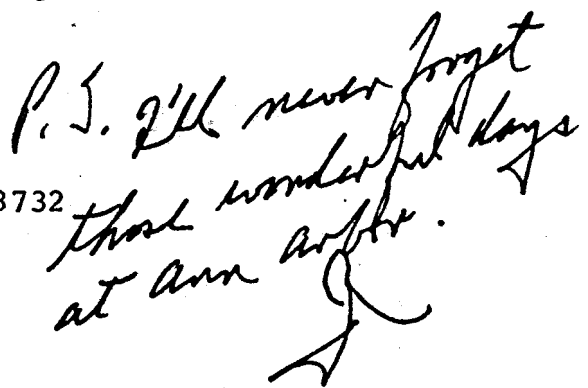 P.S. I'll never forget
those wonderful days
at Ann Arbor.
8732